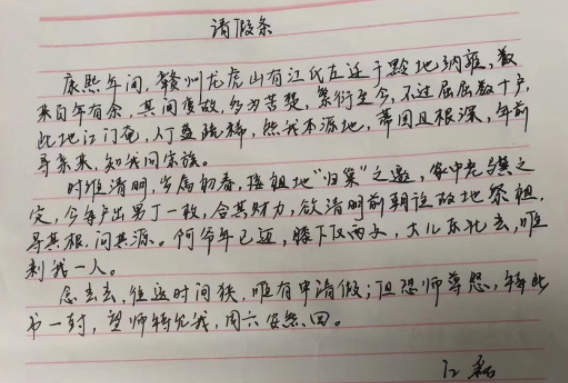 请假条
康熙年间，赣州龙虎山有江氏左迁于黔地纳雍，数
来百年有余，其间变故，多为苦楚，繁衍至今，不过屈屈数十户，
此地江门奄，人丁益疏稀，然我本源地，蒂固且根深，年前
寻亲来，知我同宗族。
时维清明，岁属初春，接祖地“归巢”之邀，家中老与集之
定，今每户出男丁一枚，合其财力，欲清明前朝往故地祭祖，
寻其根，问其源。阿爷年已迈，膝下仅两丈，大儿东北去，唯
剩我一人。
念去去，往返时间狭，唯有申请假；但恐师尊怒，特此
书一封，望师特允我，周六安然回。
江磊